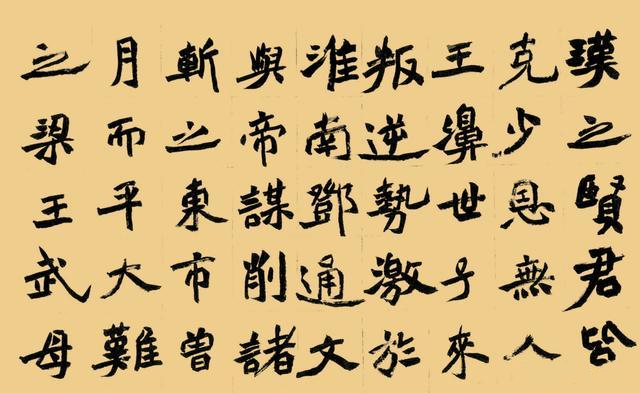 瑛之賢君皆
克少恩無人
王濞世子來
叛逆勢激於
淮南鄧通文
與帝謀削諸
斬之東市曾
月而平大難
之梁王武母